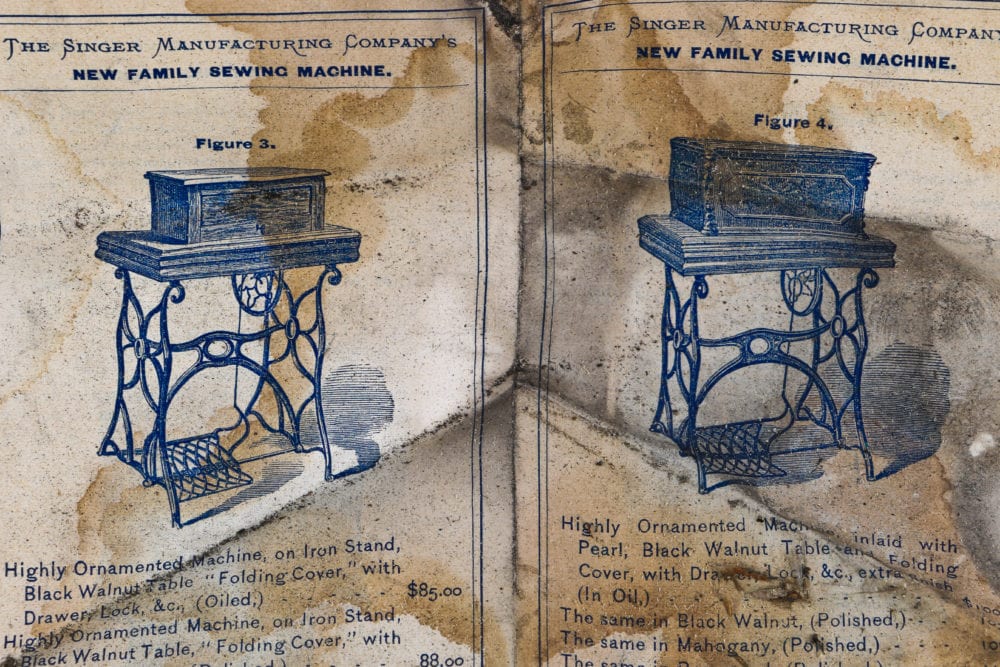 The Singer Manufacturing Company's
NEW FAMILY SEWING MACHINE.
Figure 3.
Highly Ornamented Machine, on Iron Stand,
Black Walnut Table "Folding Cover," with
Drawer, Lock, &c., (Oiled,) - - - $85.00
Highly Ornamented Machine, on Iron Stand,
Black Walnut Table, "Folding Cover," with
88.00
The Singer Manufacturing Company
NEW FAMILY SEWING MACHINE.
Figure 4.
Highly Ornamented inlaid with
Pearl, Black Walnut Table and Folding
Cover, with Drawer, Lock, &c., extra
(In Oil,)
The same in Black Walnut, (Polished,) - -
The same in Mahogany, (Polished,) -